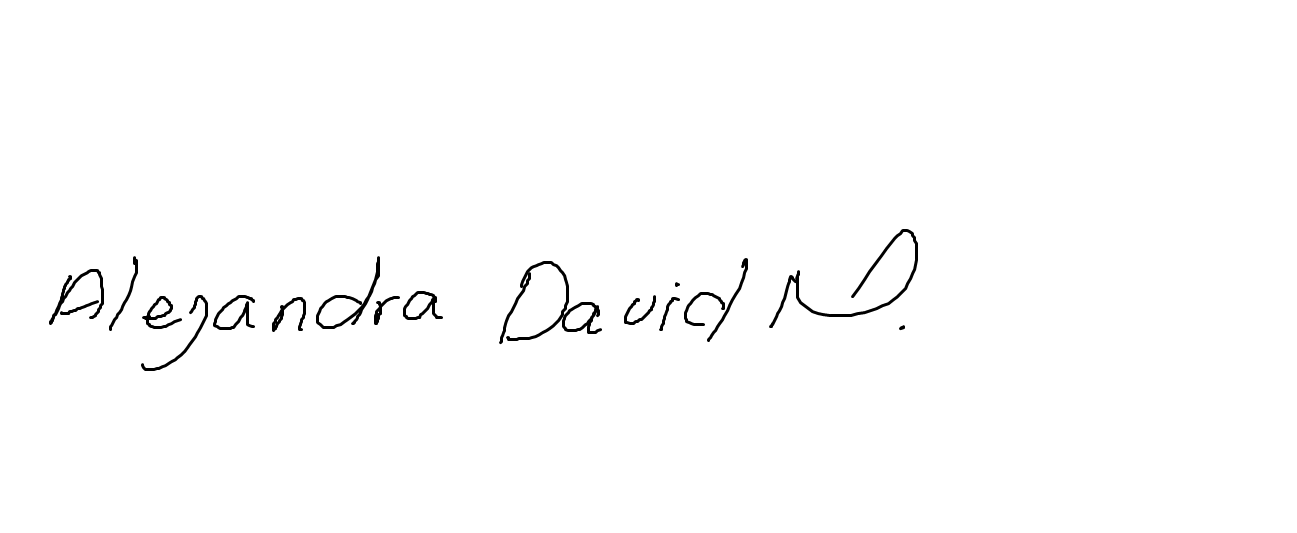 Alejandra David N.